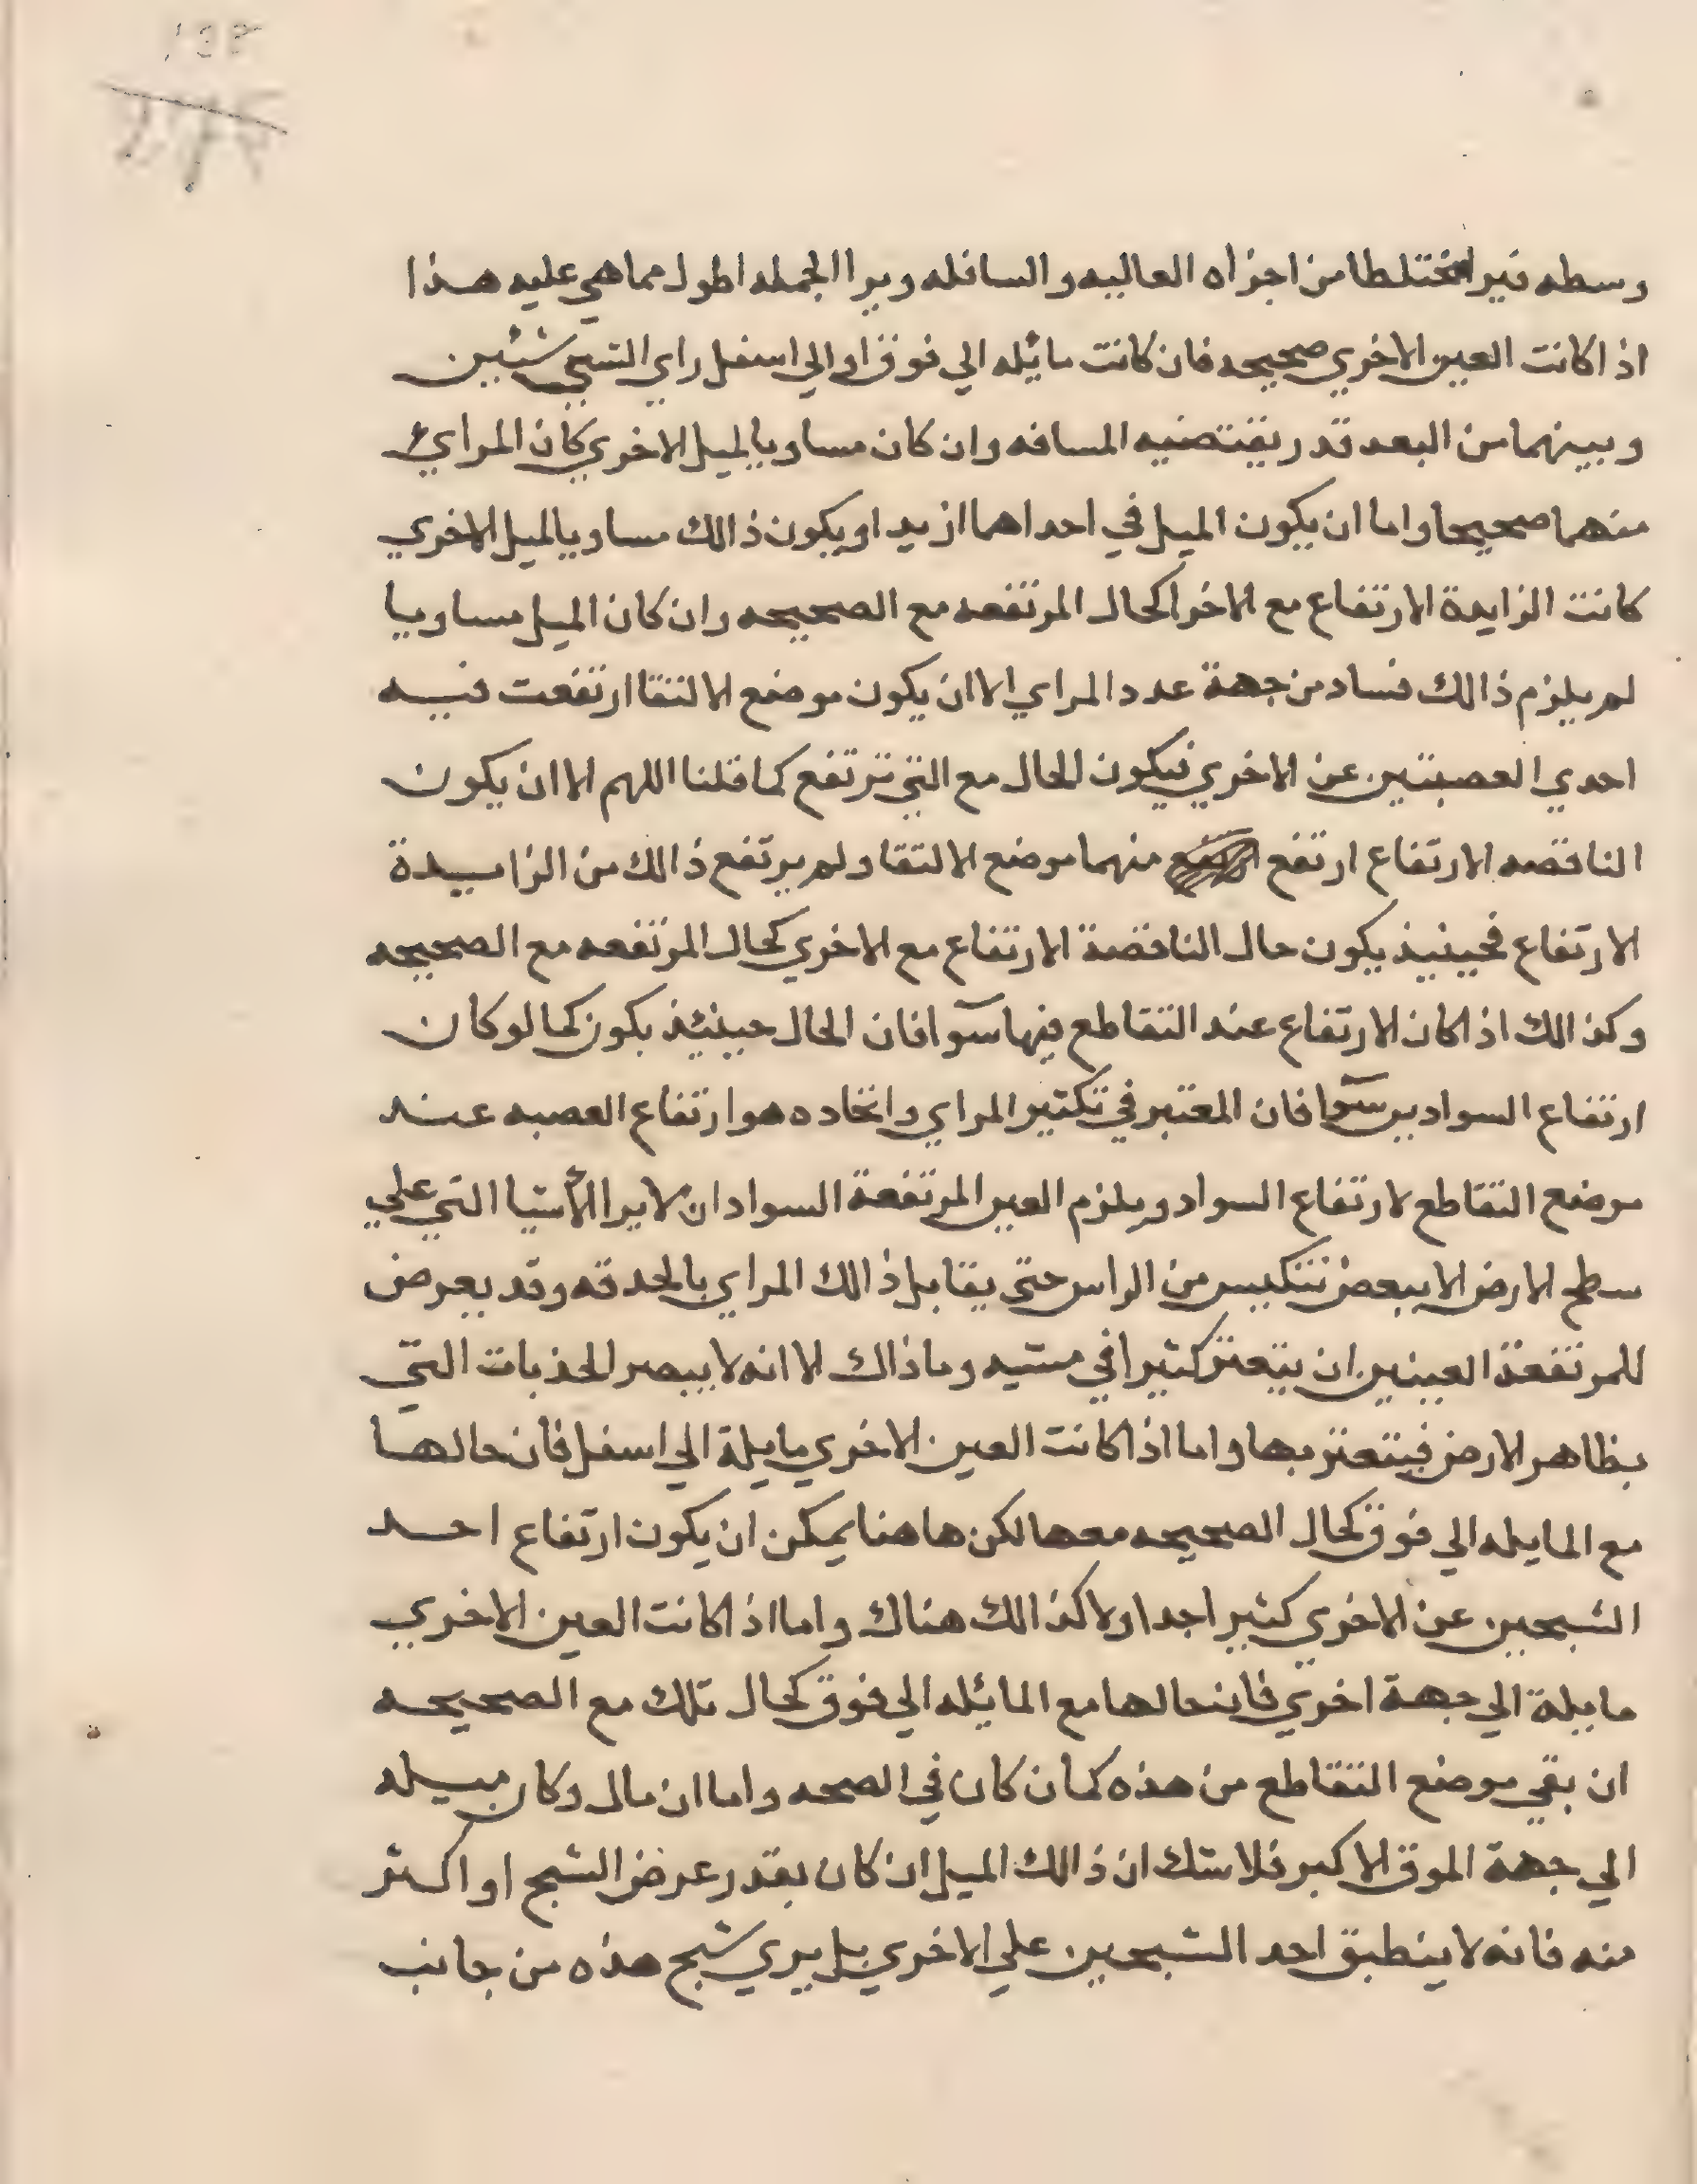 وسطه فيرا مختلطا من اجزاه العاليه والسافله ويرا الجمله اطول مما هي عليه هذا
اذا كانت العين الاخري صحيحه فان كانت مائله الي فوق او الي اسفل راي الشي شئين
وبينهما من البعد قدر يقتضيه المسافه وان كان مساويا لميل الاخري كان المرايئ
منهما صحيحا واما ان يكون الميل في احداهما ازيد او يكون ذالك مساويا لميل الاخري
كانت الزايدة الارتفاع مع الاخر الحال المرتفعه مع الصحيحه وان كان الميل مساويا
لم يلزم ذالك فساد من جهة عدد المراي الا ان يكون موضع الالتقا ارتفعت فيه
احدي العصبتين عن الاخري فيكون الحال مع التي ترتفع كما قلنا اللهم الا ان يكون
الناقصه الارتفاع ارتفع منهما موضع الالتقا ولم يرتفع ذالك من الزايدة
الارتفاع فحينيذ يكون حال الناقصة الارتفاع مع الاخري كحال المرتفعه مع الصحيحه
وكذالك اذا كان الارتفاع عند التقاطع فيها سوا فان الحال حينئذ يكون كما لو كان
ارتفاع السوادين سوا فان المعتبر في تكتير المراي واتحاده هو ارتفاع العصبه عند
موضع التقاطع لارتفاع السواد ويلزم العين المرتفعة السواد ان لا يرا الأشيا التي علي
سطح الارض الا ببعض تنكيس من الراس حتي يقابل ذالك المراي بالحدقه وقد يعرض
للمرتفعة العينين ان يتعتر كثيرا في مشيه وما ذاك الا انه لا يبصر الحذبات التي
بظاهر الارض فيتعتر بها واما اذا كانت العين الاخري مايلة الي اسفل فان حالها
مع المايله الي فوق كحال الصحيحه معها لكن هاهنا يمكن ان يكون ارتفاع احد
الشبحين عن الاخري كثيرا جدا ولا كذالك هناك واما اذا كانت العين الاخري
مايلة الي جهة اخري فان حالها مع المائله الي فوق كحال تلك مع الصحيحه
ان بقي موضع التقاطع من هذه كما ن كان في الصحه واما ان مال وكان ميله
الي جهة الموق الاكبر فلا شك ان ذالك الميل ان كان بقدر عرض الشبح او اكثر
منه فانه لا ينطبق احد الشبحين علي الاخري بل يري شبح هذه من جانب